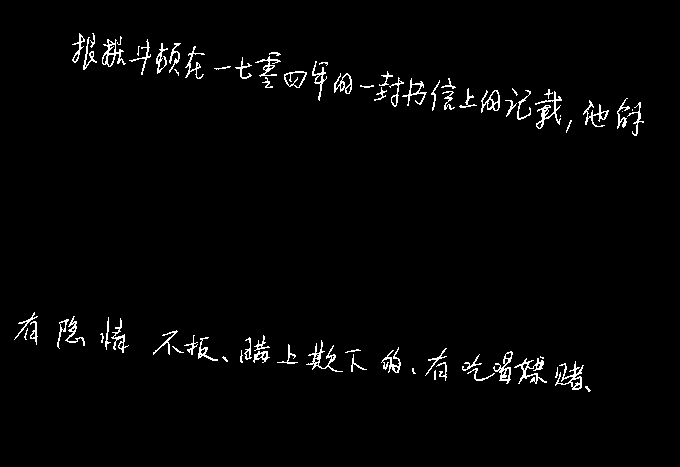 根据牛顿在一七零四年的一封书信上的记载,他的
有隐情不报、瞒上欺下的、有吃喝嫖赌、